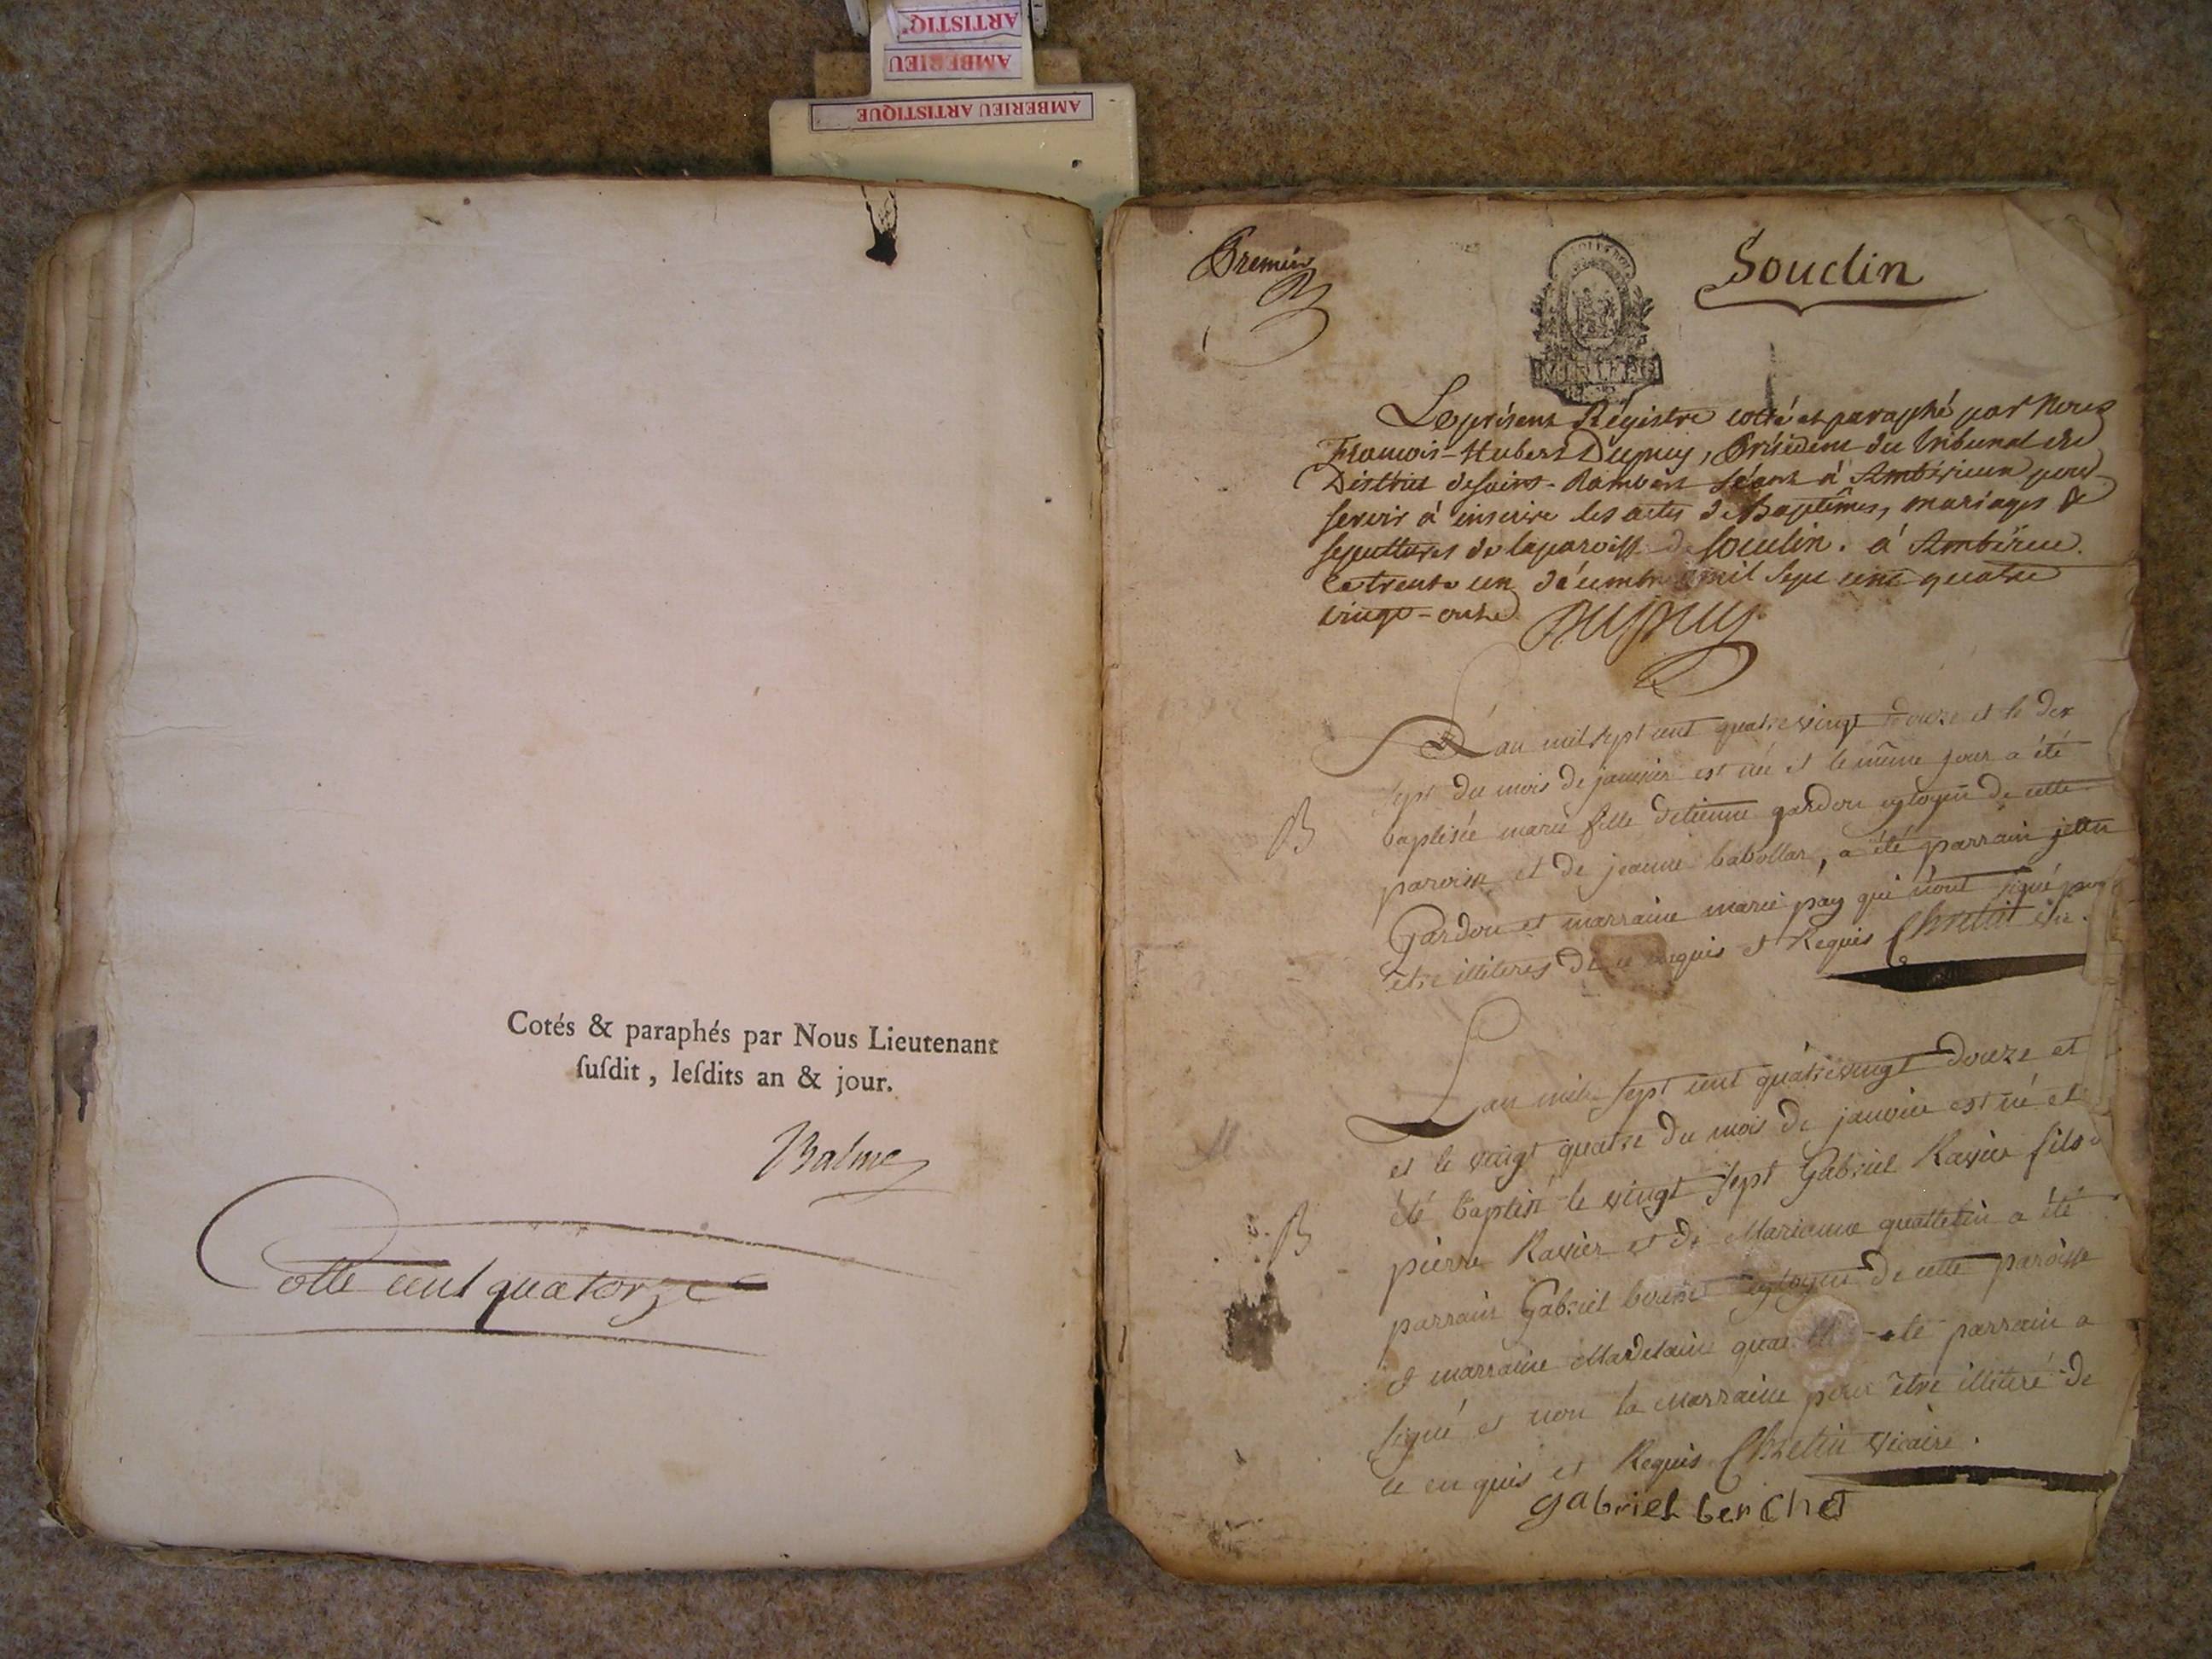 ARTISTIQ
AMBERIEU
AMBERIEU ARTISTIQUE
Cotés & paraphés par Nous Lieutenant
ſuſdit, leſdits an & jour.
Balme
Cotte cent quatorze
Premier
Souclin
Le présent Régistre cotté et paraphé par Nous
François-Hubert Dupuy, Président du tribunal du
District de saint-Rambert séant à Ambérieux pour
servir à inscrire les actes de Baptêmes, mariages &
sepultures de la paroisse de souclin. à Ambérieu.
Le trente un décembre mil sept cent quatre
vingt-onze Dupuy
L'an mil sept cent quatrevingt douze et le dix
sept du mois de janvier est né et le même jour a été
B
baptisée marie fille d'etienne gardon cytoyen de cette
paroisse et de jeanne babollat, a été parrain
Gardon et marraine marie pay qui n'ont signé pour
être illiteres de ce enquis et Requis Chretin vic.
L'an mil sept cent quatrevingt douze et
et le vingt quatre du mois de janvier est né et
été baptisé le vingt sept Gabriel Ravier fils
B
pierre Ravier et de Marianne quattelin a été
parrain Gabriel cytoyen de cette paroisse
et marraine Mardelaine le parrain a
signé et non la Marraine pour être illiteré de
ce enquis et Requis Chretin vicaire.
gabriel berchet